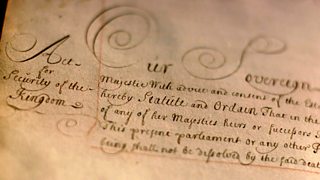 Act
for
Security of the
Kingdom
Our Sovereign
Majestie With advice and consent of the
hereby Statute and Ordain That in the
of any of her Majesties heirs or successors
This present parliament or any other
being shall not be dissolved by the said